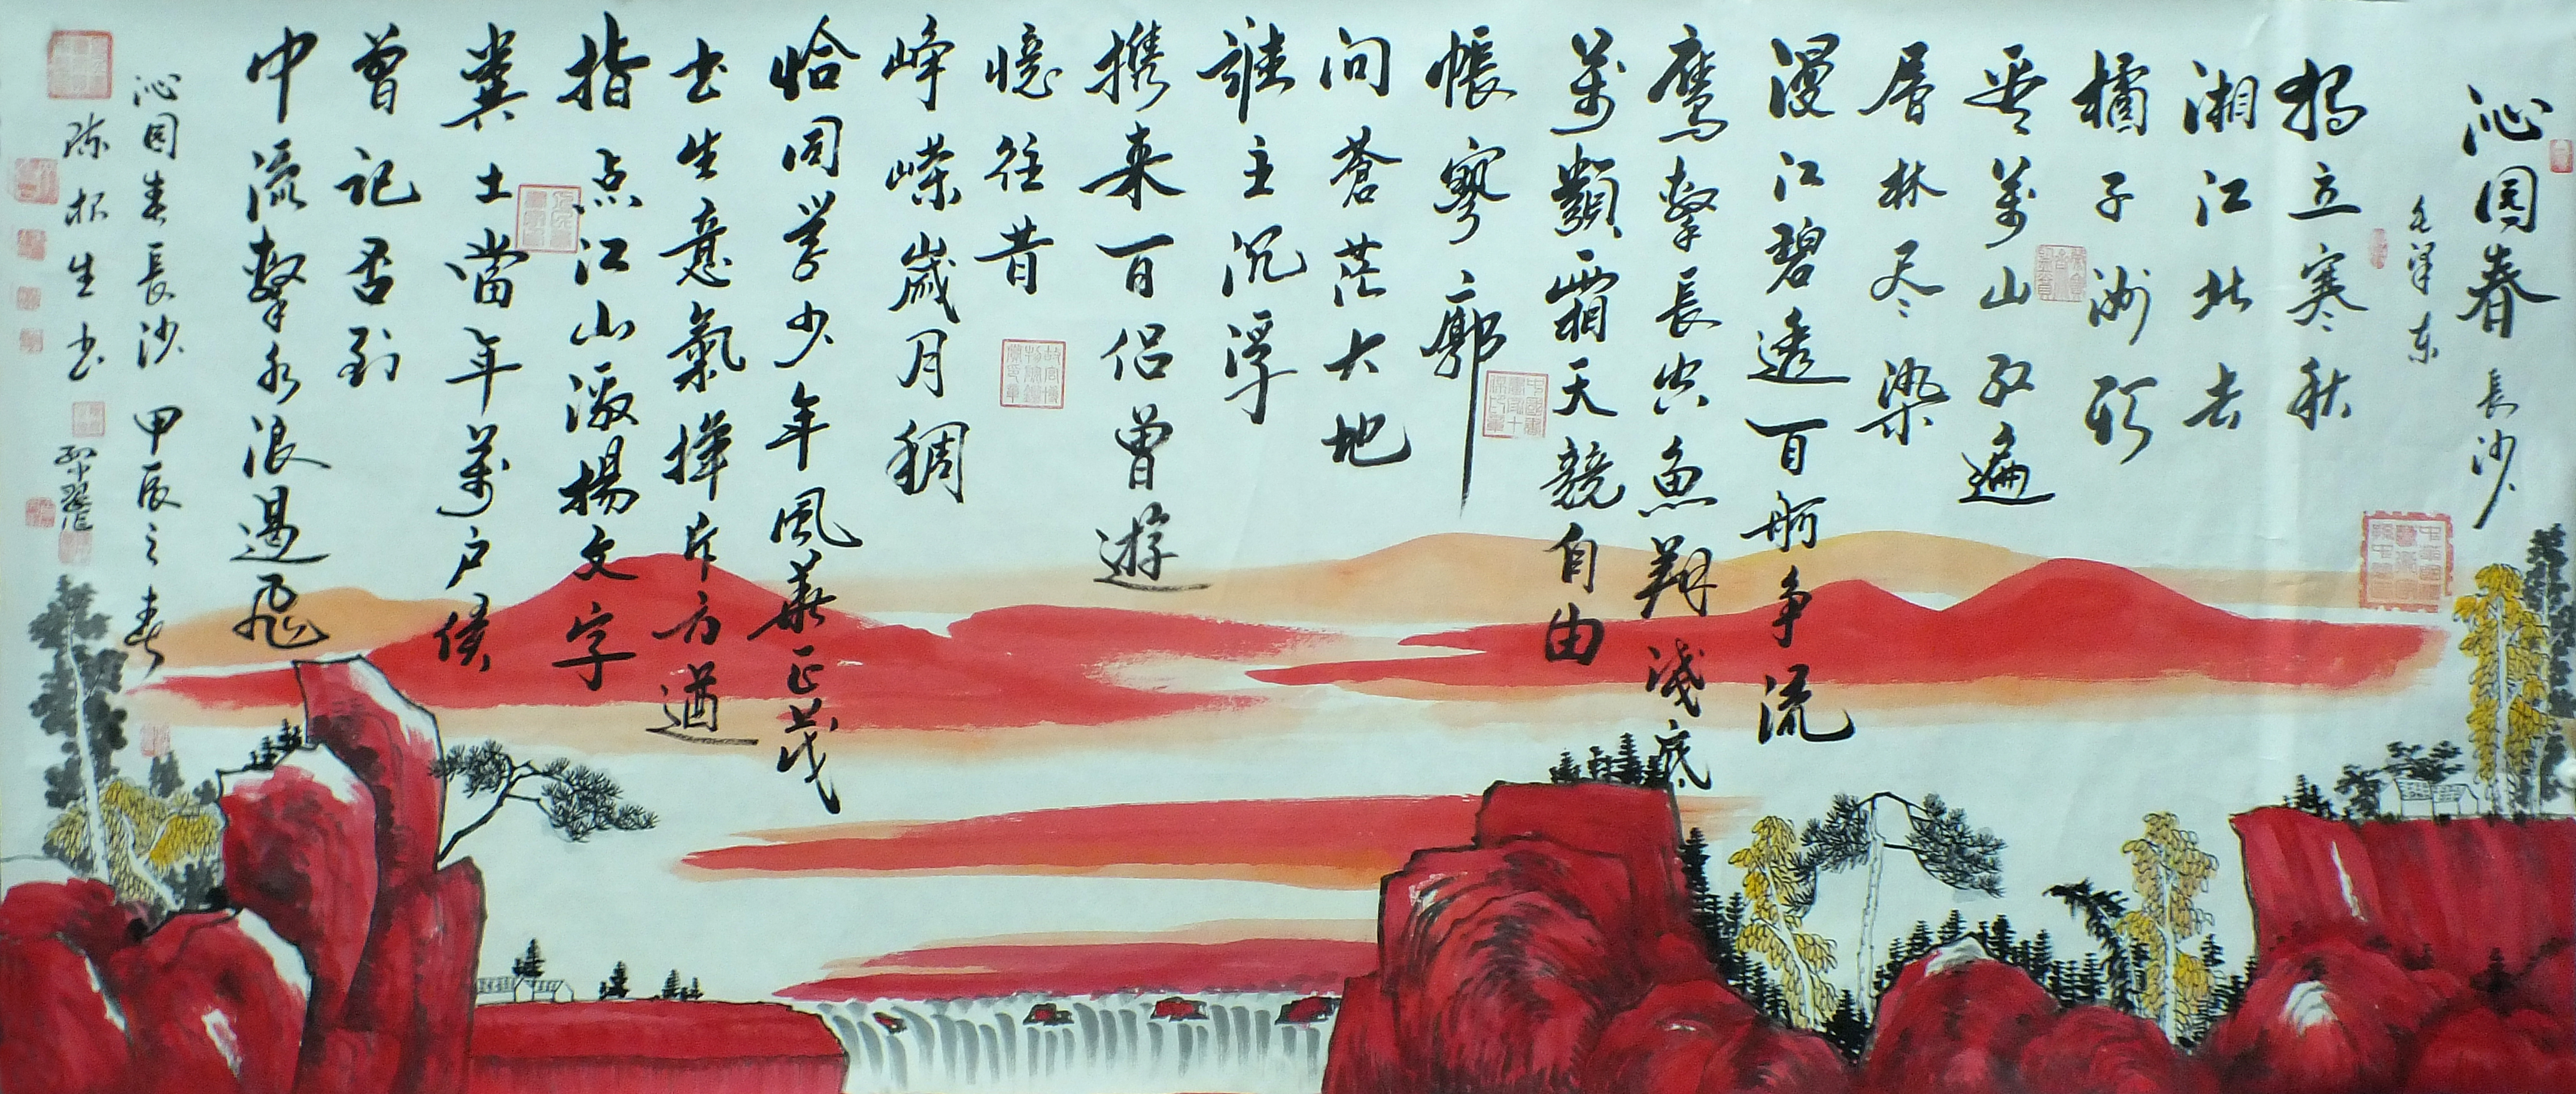 沁园春 長沙
毛泽东
独立寒秋
湘江北去
橘子洲头
看萬山红遍
层林尽染
漫江碧透百舸争流
鹰擊長空魚翔淺底
萬類霜天競自由
悵寥廓
问蒼茫大地
誰主沉浮
携来百侣曾遊
憶往昔
峥嵘歲月稠
恰同学少年風華正茂
书生意氣揮斥方遒
指点江山激揚文字
糞土當年萬户侯
曾记否到
中流擊水浪遏飞
沁园春長沙 甲辰之春
陈杯生书